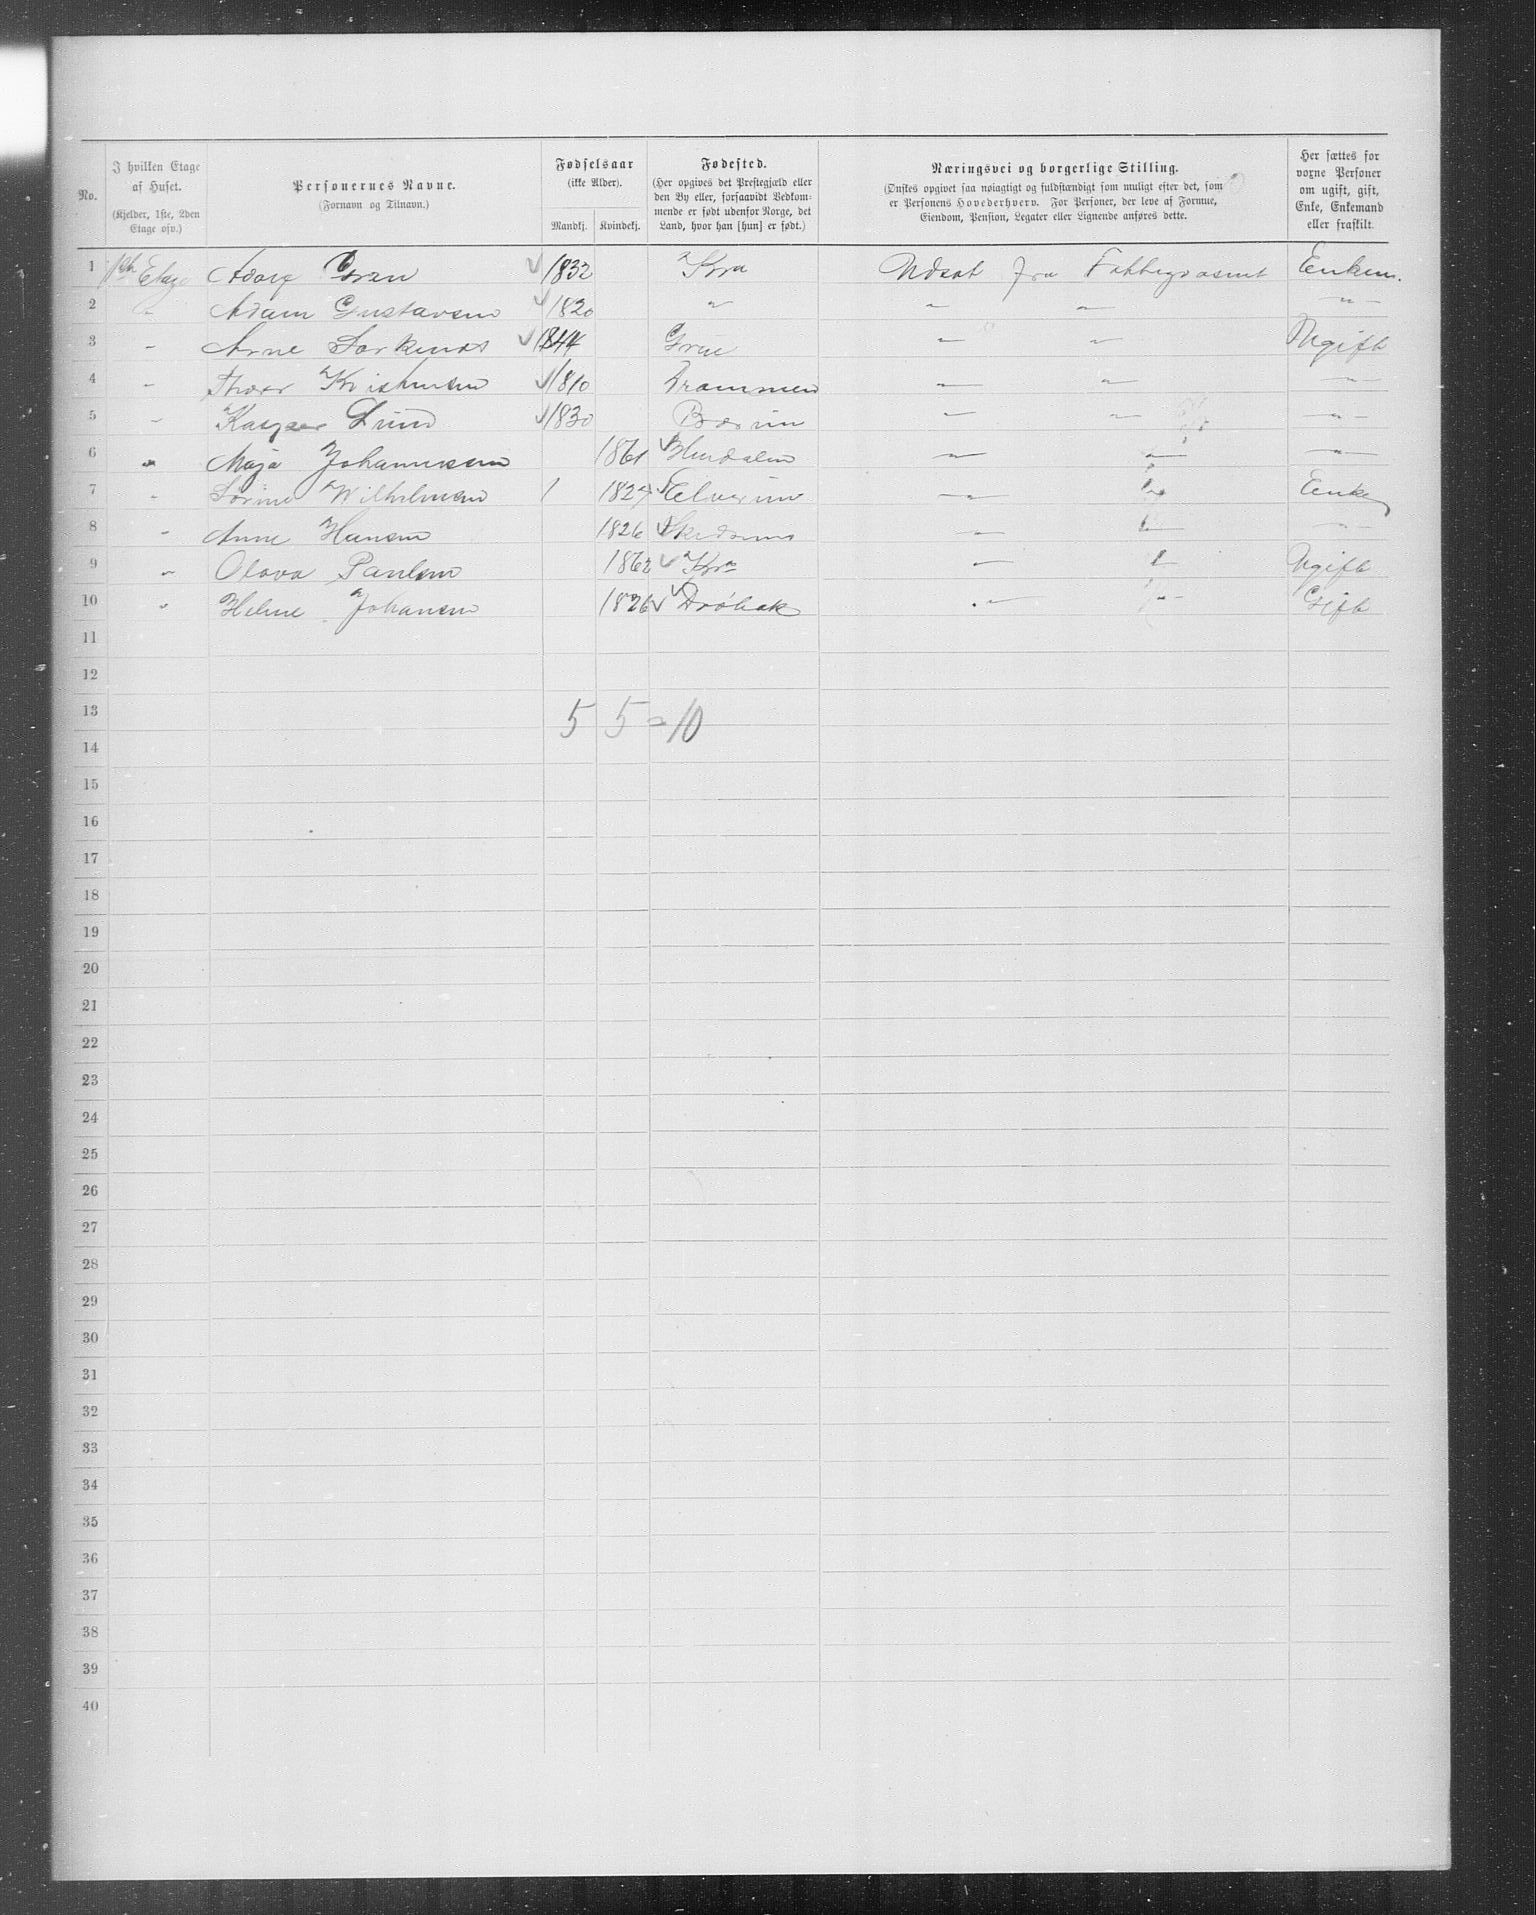 No.
I hvilken Etage af Huset.
(Kjelder, 1ste, 2den Etage osv.)
Personernes Navne.
(Fornavn og Tilnavn.)
Fødselsaar
(ikke Alder).
Mandkj. Kvindekj.
Fødested.
(Her opgives det Prestegjæld eller
den By eller, forsaavidt Vedkom-
mende er født udenfor Norge, det
Land, hvor han [hun] er født.)
Næringsvei og borgerlige Stilling.
(Ønskes opgivet saa nøiagtigt og fuldstændigt som muligt efter det, som
er Personens Hovederhverv. For Personer, der leve af Formue,
Eiendom, Pension, Legater eller Lignende anføres dette.
Her sættes for
voxne Personer
om ugift, gift,
Enke, Enkemand
eller fraskilt.
1 Etage Adolf Gran 1832 Kra Udsat fra Enkem.
2 " Adam Gustavsen 1820 " " " "
3 " Arne 1844 Grue " " Ugift
4 " Kristensen 1810 Drammen " " "
5 " Kasper Lund 1830 Bærum " " "
6 " Maja Johannessen 1861 Hurdalen " " "
7 " Sørine Wilhelmsen 1 1827 Elverum " " Enke
8 " Anne Hansen 1826 Skedsmo " " "
9 " Olava Paulsen 1862 Kra " " Ugift
10 " Helene Johansen 1826 Drøbak " " Gift
11
12
13 5 5 = 10
14
15
16
17
18
19
20
21
22
23
24
25
26
27
28
29
30
31
32
33
34
35
36
37
38
39
40